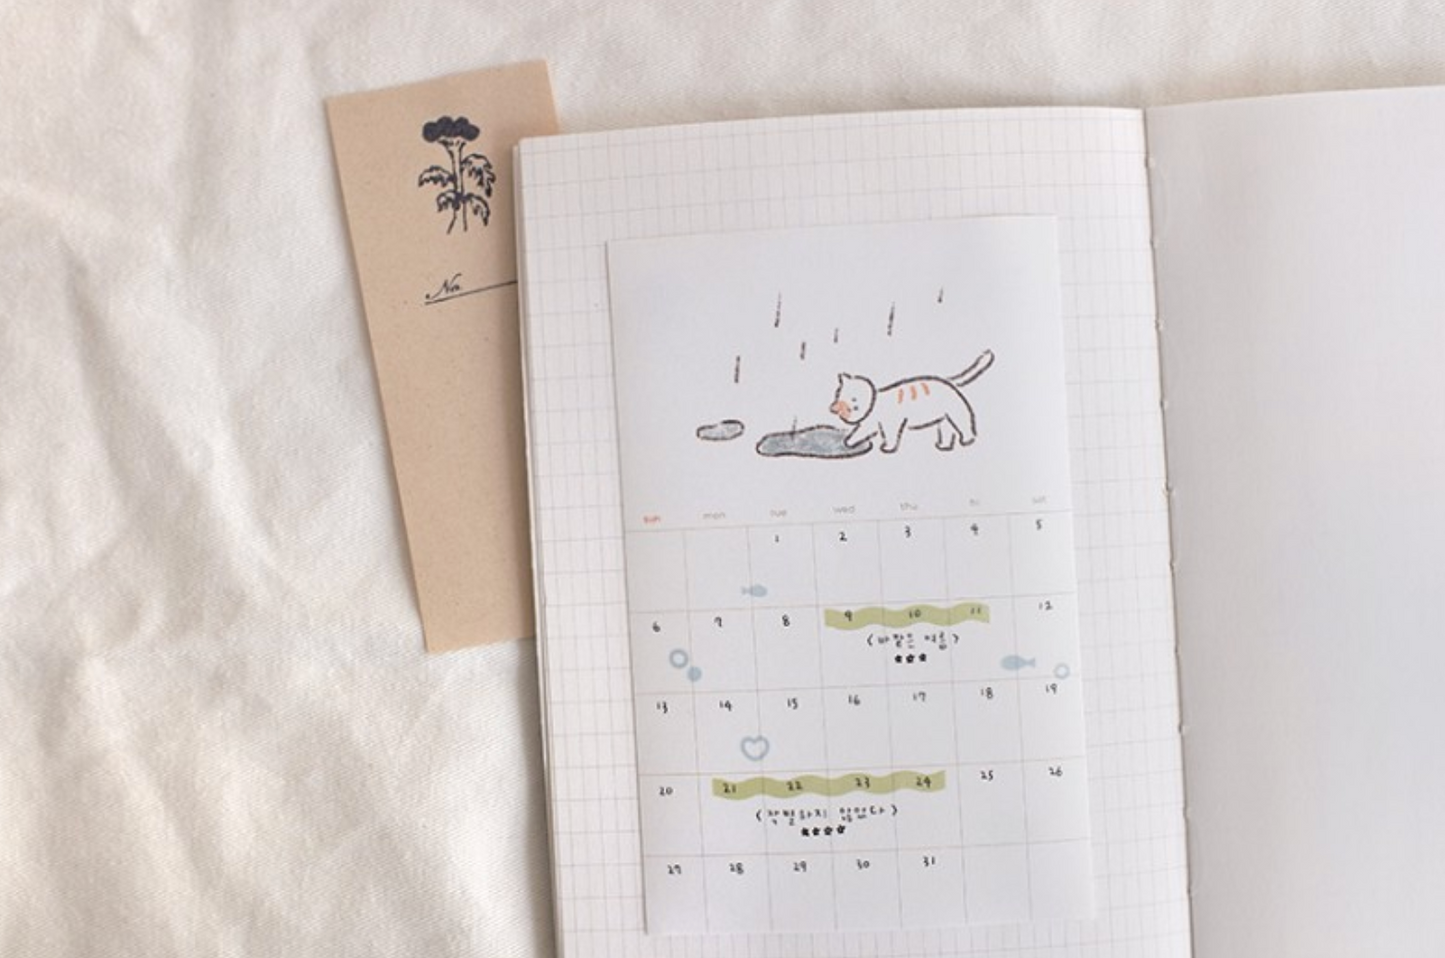 No.
sun mon tue wed thu fri sat
1 2 3 4 5
6 7 8 9 10 11 12
<바깥은 여름>
★★★
13 14 15 16 17 18 19
20 21 22 23 24 25 26
<작별하지 않는다>
★★★★
27 28 29 30 31